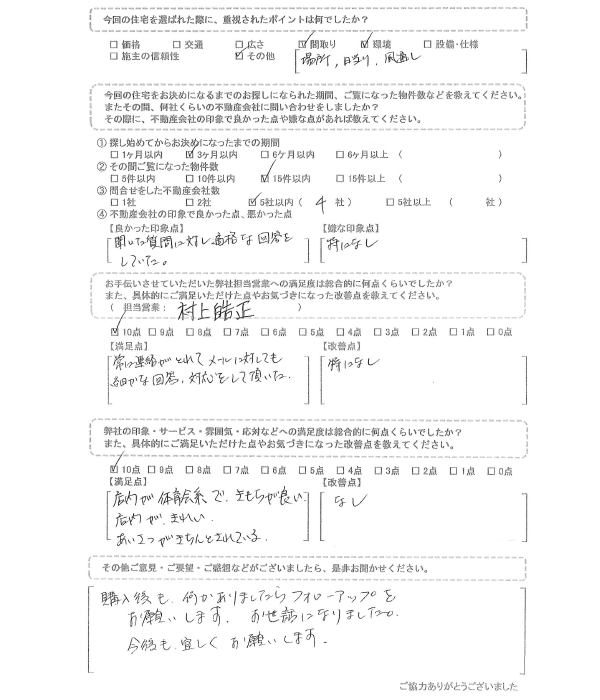 今回の住宅を選ばれた際に、重視されたポイントは何でしたか？
□ 価格 □ 交通 □ 広さ ☑ 間取り ☑ 環境 □ 設備・仕様
□ 施主の信頼性 ☑ その他 場所，日当り，風通し
今回の住宅をお決めになるまでのお探しになられた期間、ご覧になった物件数などを教えてください。
またその間、何社くらいの不動産会社に問い合わせをしましたか？
その際に、不動産会社の印象で良かった点や嫌な点があれば教えてください。
① 探し始めてからお決めになったまでの期間
□ 1ヶ月以内 ☑ 3ヶ月以内 □ 6ケ月以内 □ 6ケ月以上 （ ）
② その間ご覧になった物件数
□ 5件以内 □ 10件以内 ☑ 15件以内 □ 15件以上 （ ）
③ 問合せをした不動産会社数
□ 1社 □ 2社 ☑ 5社以内（ 4 社） □ 5社以上 （ 社）
④ 不動産会社の印象で良かった点、悪かった点
【良かった印象点】 【嫌な印象点】
聞いた質問に対し適格な回答を 特になし
していた。
お手伝いさせていただいた弊社担当営業への満足度は総合的に何点くらいでしたか？
また、具体的にご満足いただけた点やお気づきになった改善点を教えてください。
（ 担当営業： 村上皓正 ）
☑ 10点 □ 9点 □ 8点 □ 7点 □ 6点 □ 5点 □ 4点 □ 3点 □ 2点 □ 1点 □ 0点
【満足点】 【改善点】
常に連絡がとれて メールに対しても 特になし
細かな回答，対応をして頂いた．
弊社の印象・サービス・雰囲気・応対などへの満足度は総合的に何点くらいでしたか？
また、具体的にご満足いただけた点やお気づきになった改善点を教えてください。
☑ 10点 □ 9点 □ 8点 □ 7点 □ 6点 □ 5点 □ 4点 □ 3点 □ 2点 □ 1点 □ 0点
【満足点】 【改善点】
店内が体育会系で、きもちが良い． なし
店内が、きれい．
あいさつがきちんとされている．
その他ご意見・ご要望・ご感想などがございましたら、是非お聞かせください。
購入後も、何かありましたらフォローアップを
お願いします． お世話になりました。
今後も、宜しくお願いします．
ご協力ありがとうございました